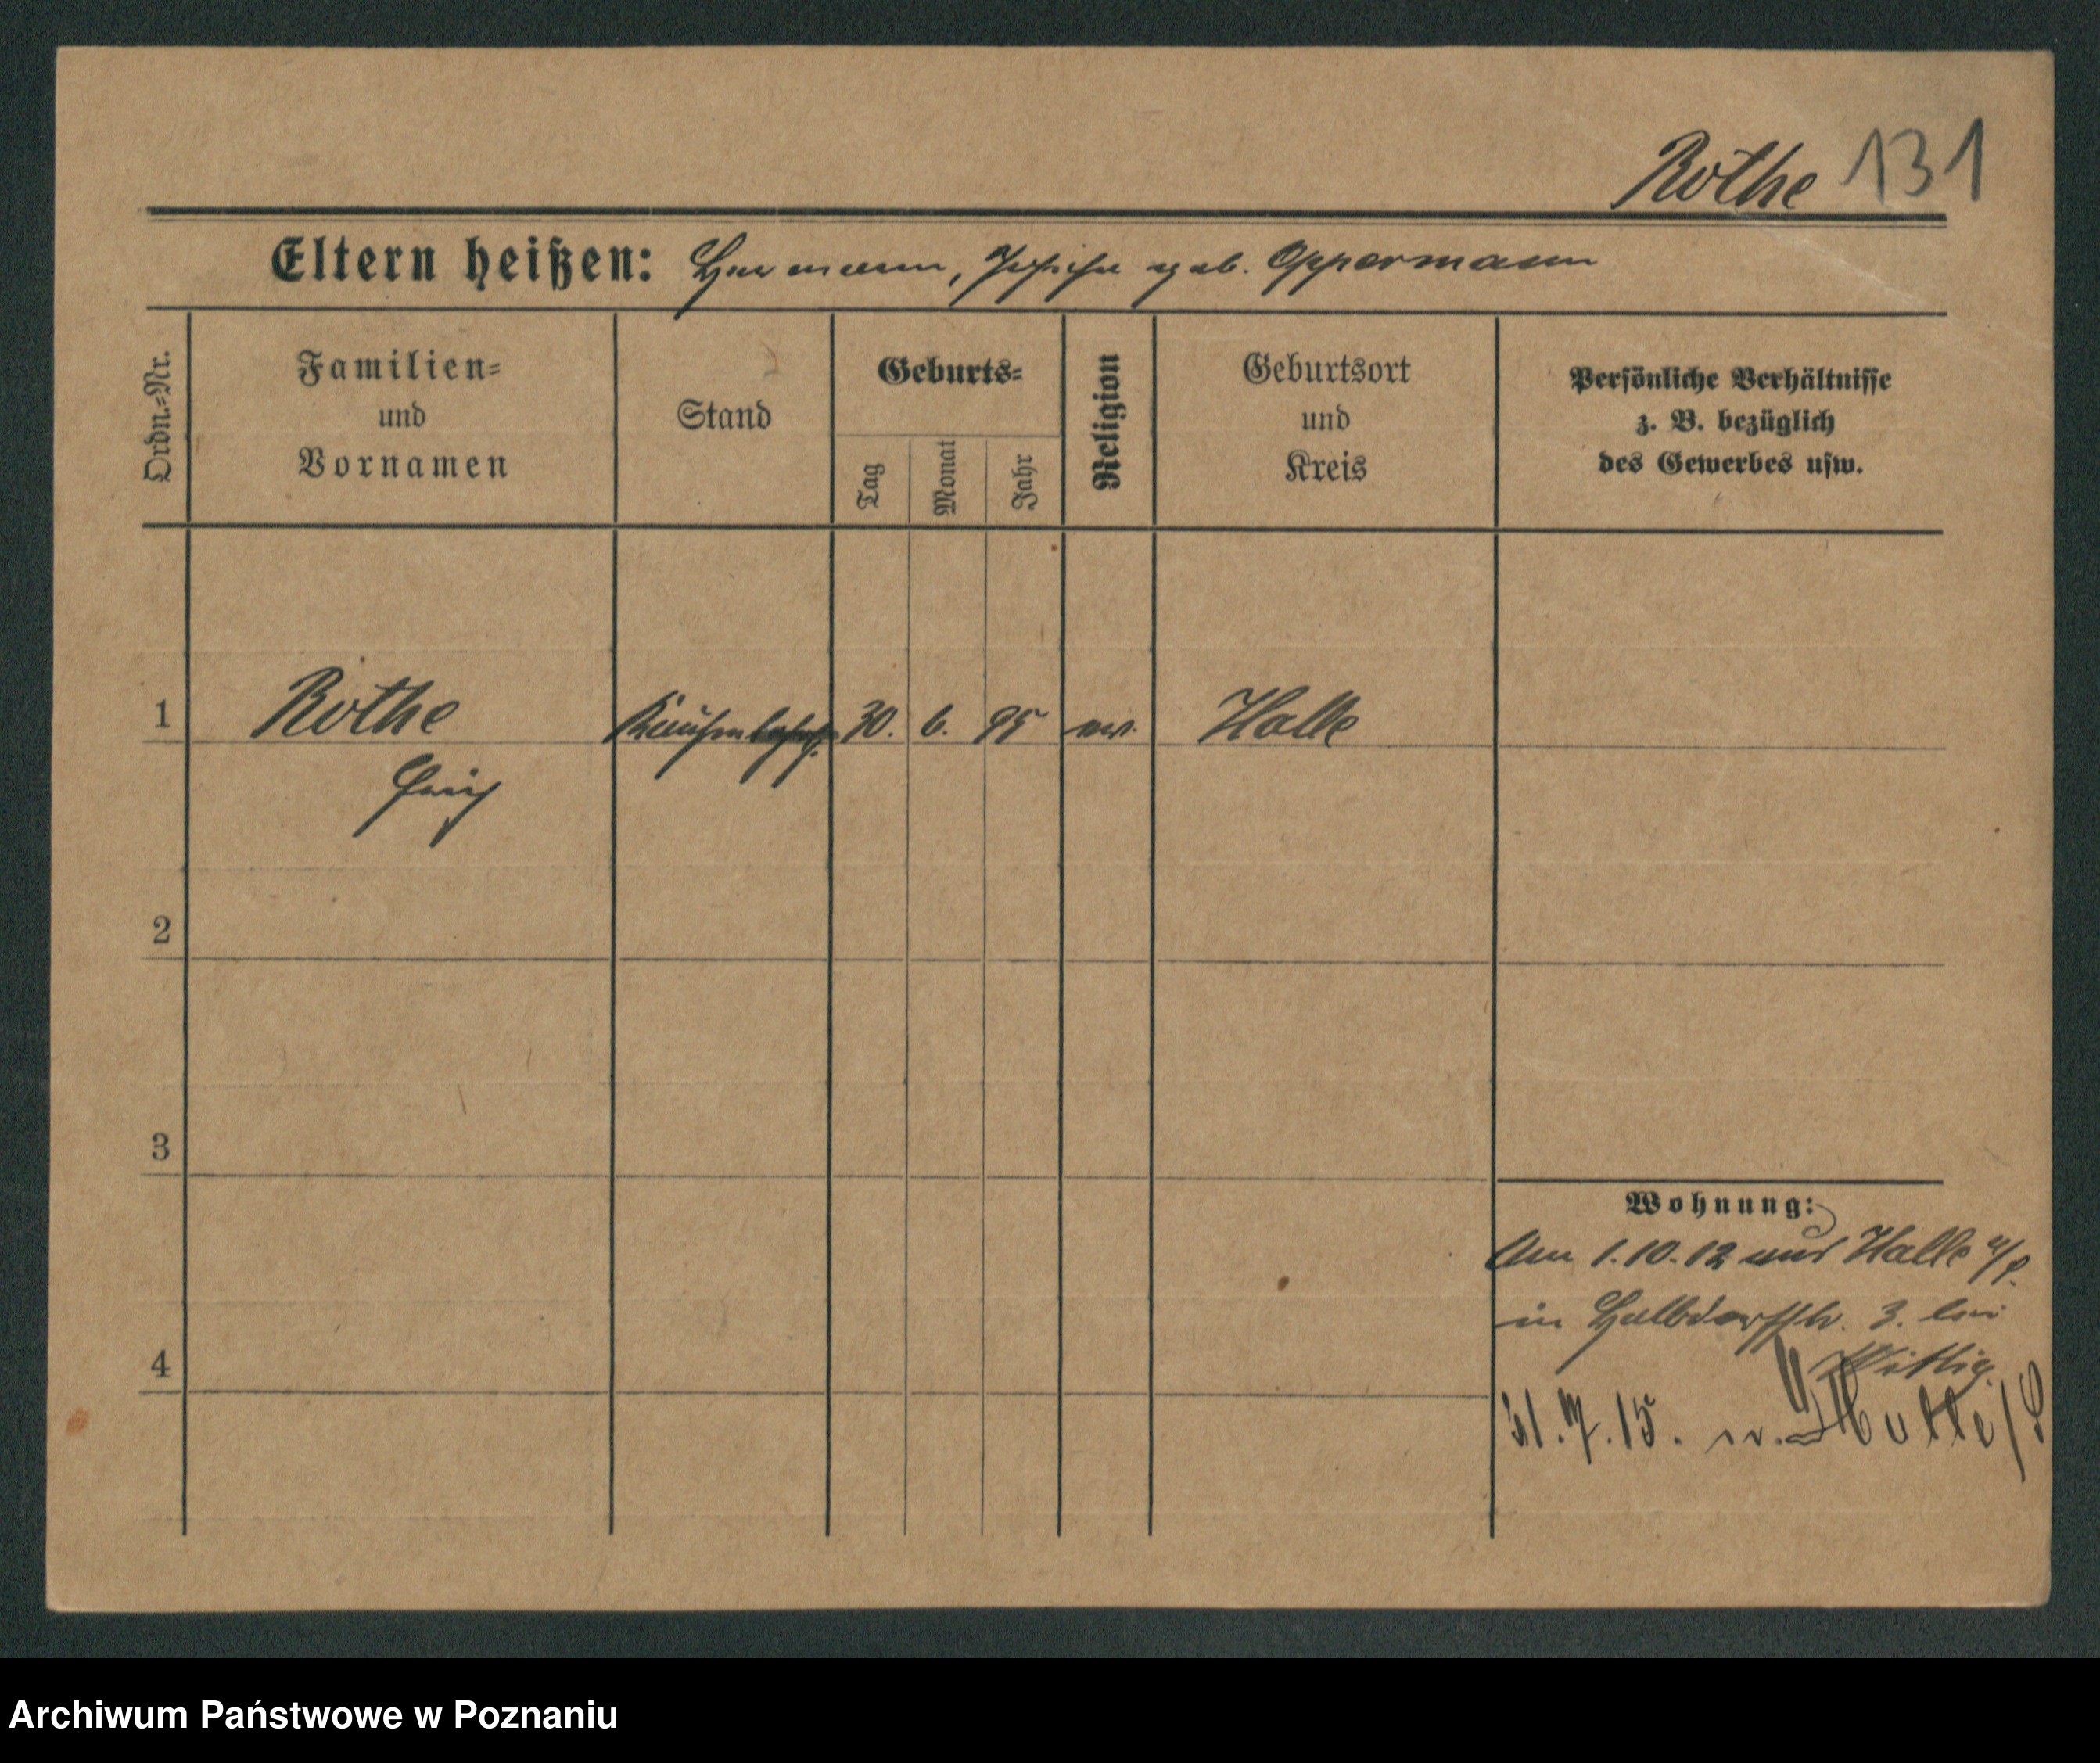 Rothe 131
Eltern heißen: Hermann, geb. Oppermann
Ordn.=Nr.
Familien=
und
Vornamen
Stand
Geburts=
Tag
Monat
Jahr
Religion
Geburtsort
und
Kreis
Persönliche Verhältnisse
z. B. bezüglich
des Gewerbes usw.
1 Rothe 30. 6. 95 ev. Halle
2
3
4
Wohnung:
Am 1.10.12 aus Halle a/S.
in Halbdorfstr. 3. bei
Wittig
31.7.15. n. Halle/S
Archiwum Państwowe w Poznaniu